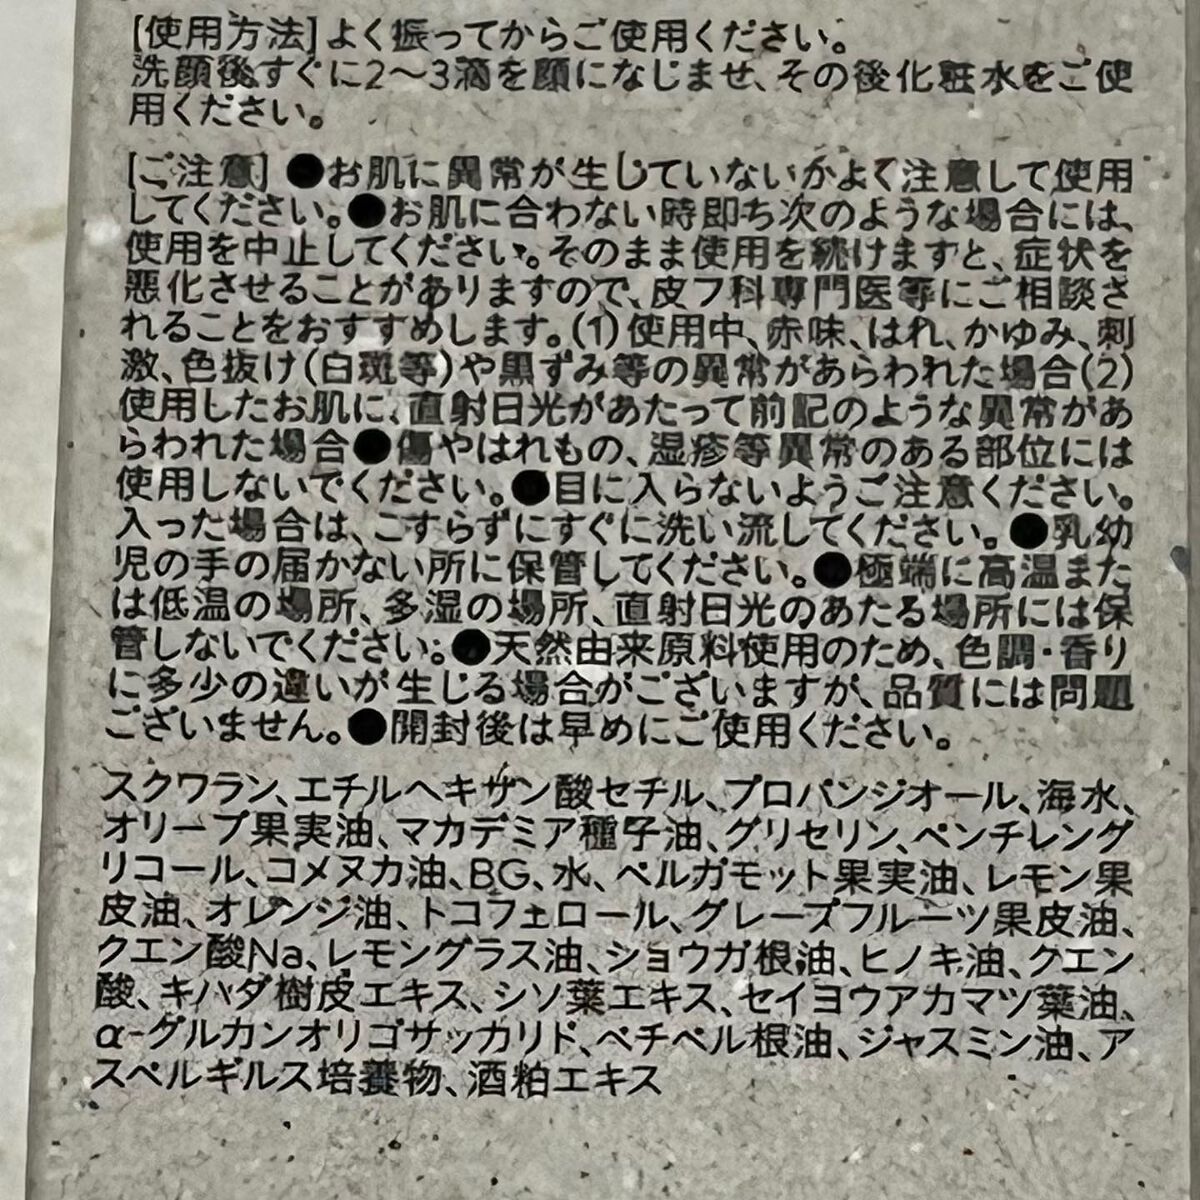 [使用方法]よく振ってからご使用ください。
洗顔後すぐに2〜3滴を顔になじませ、その後化粧水をご使
用ください。
[ご注意]●お肌に異常が生じていないかよく注意して使用
してください。●お肌に合わない時即ち次のような場合には、
使用を中止してください。そのまま使用を続けますと、症状を
悪化させることがありますので、皮フ科専門医等にご相談さ
れることをおすすめします。(1)使用中、赤味、はれ、かゆみ、刺
激、色抜け(白斑等)や黒ずみ等の異常があらわれた場合(2)
使用したお肌に、直射日光があたって前記のような異常があ
らわれた場合●傷やはれもの、湿疹等異常のある部位には
使用しないでください。●目に入らないようご注意ください。
入った場合は、こすらずにすぐに洗い流してください。●乳幼
児の手の届かない所に保管してください。●極端に高温また
は低温の場所、多湿の場所、直射日光のあたる場所には保
管しないでください。●天然由来原料使用のため、色調・香り
に多少の違いが生じる場合がございますが、品質には問題
ございません。●開封後は早めにご使用ください。
スクワラン、エチルヘキサン酸セチル、プロパンジオール、海水、
オリーブ果実油、マカデミア種子油、グリセリン、ペンチレング
リコール、コメヌカ油、BG、水、ベルガモット果実油、レモン果
皮油、オレンジ油、トコフェロール、グレープフルーツ果皮油、
クエン酸Na、レモングラス油、ショウガ根油、ヒノキ油、クエン
酸、キハダ樹皮エキス、シソ葉エキス、セイヨウアカマツ葉油、
α-グルカンオリゴサッカリド、ベチベル根油、ジャスミン油、ア
スペルギルス培養物、酒粕エキス